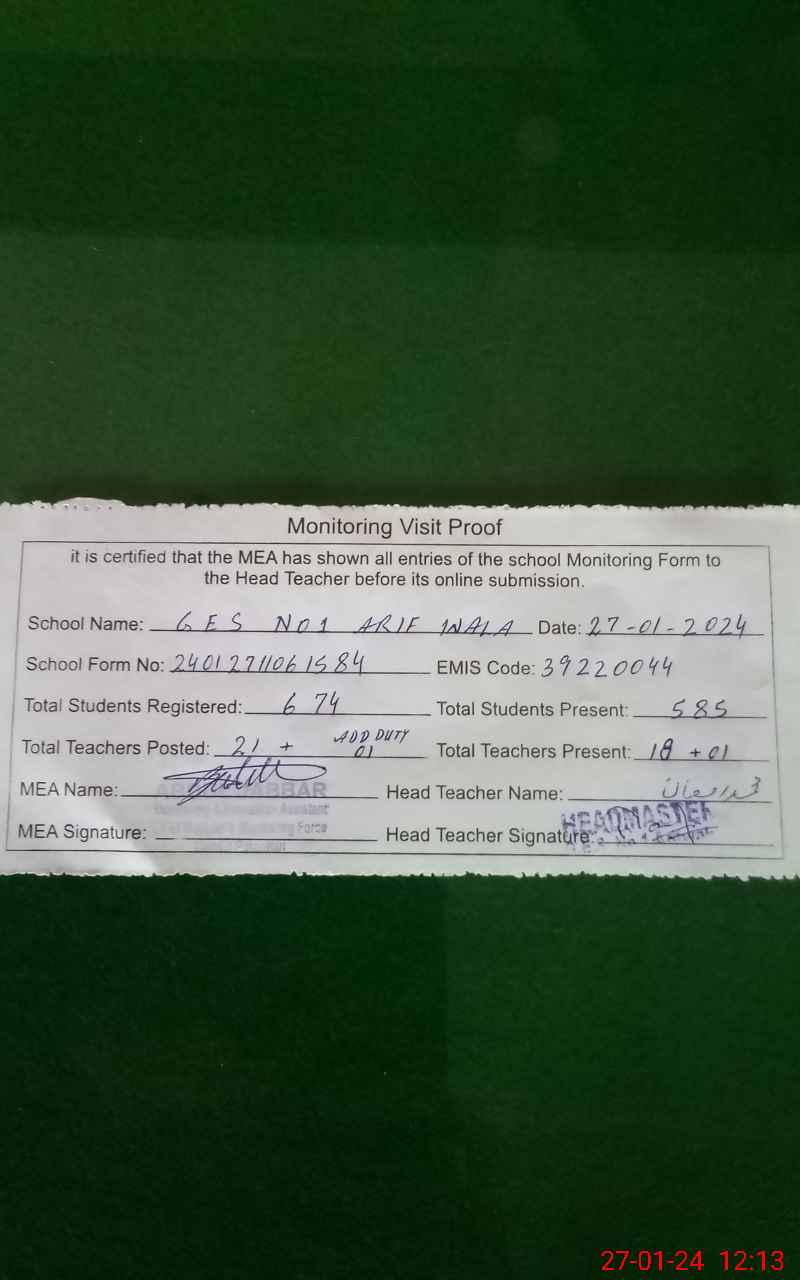 Monitoring Visit Proof
it is certified that the MEA has shown all entries of the school Monitoring Form to
the Head Teacher before its online submission.
School Name: GES NO1 ARIF WALA Date: 27-01-2024
School Form No: 24012711061584 EMIS Code: 39220044
Total Students Registered: 674 Total Students Present: 585
Total Teachers Posted: 21 + ADD DUTY 01 Total Teachers Present: 18 + 01
MEA Name: ABBAR Head Teacher Name:
Assistant
MEA Signature: Monitoring Force Head Teacher Signature: HEADMASTER
27-01-24 12:13